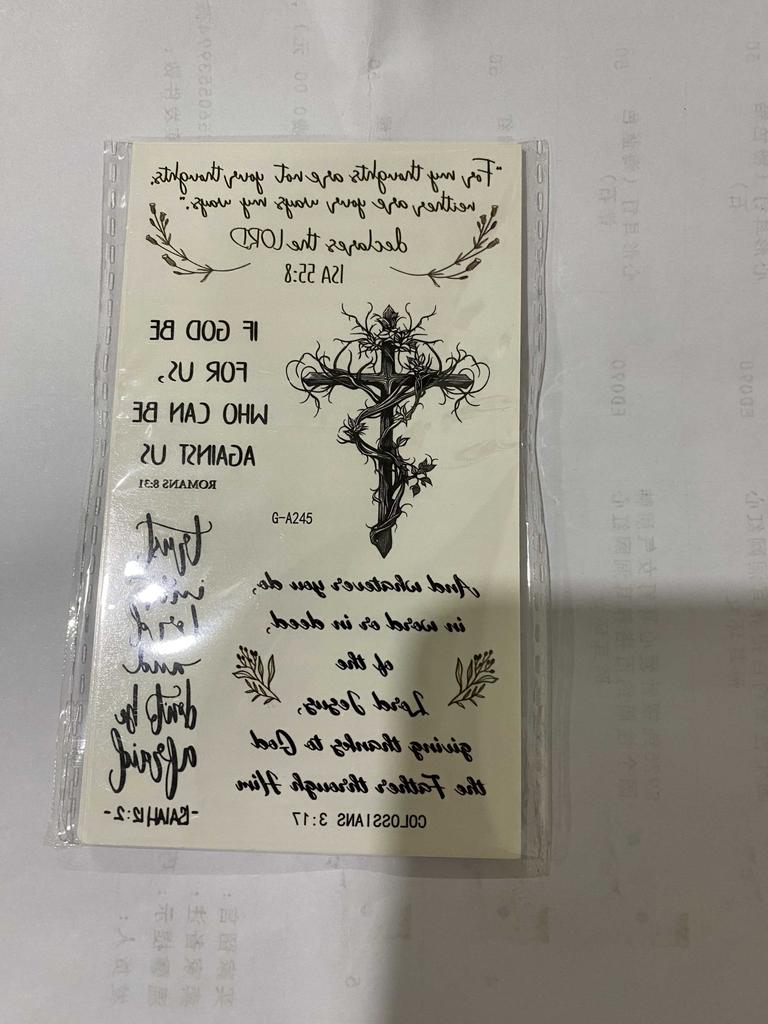 "For my thoughts are not your thoughts,
neither are your ways my ways."
declares the LORD
ISA 55:8
IF GOD BE
FOR US,
WHO CAN BE
AGAINST US
ROMANS 8:31
G-A245
trust
in
Lord
and
don't be
afraid
-ISAIAH 12:2-
And whatever you do,
in word or in deed,
of the
Lord Jesus,
giving thanks to God
the Father through Him
COLOSSIANS 3:17